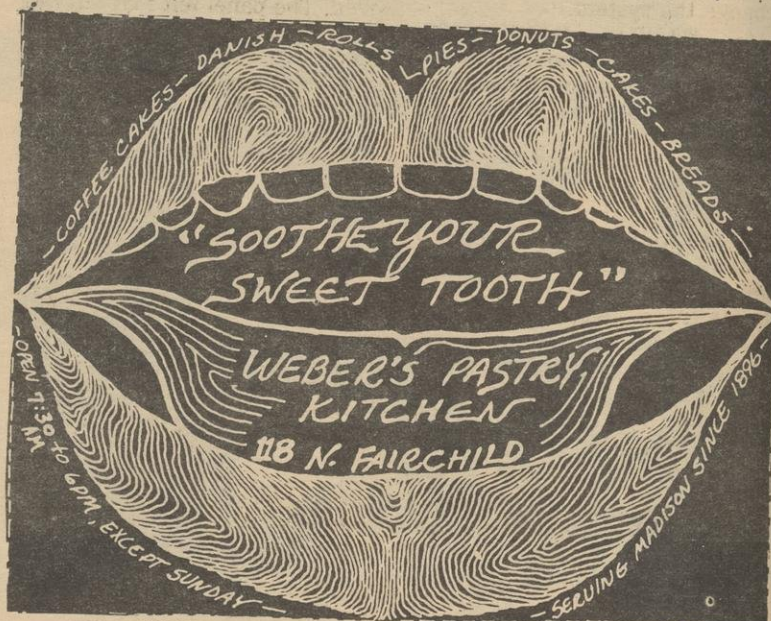 - COFFEE CAKES - DANISH - ROLLS - PIES - DONUTS - CAKES - BREADS -
"SOOTHE YOUR
SWEET TOOTH"
WEBER'S PASTRY
KITCHEN
118 N. FAIRCHILD
- OPEN 7:30 AM TO 6PM, EXCEPT SUNDAY -
- SERVING MADISON SINCE 1896 -